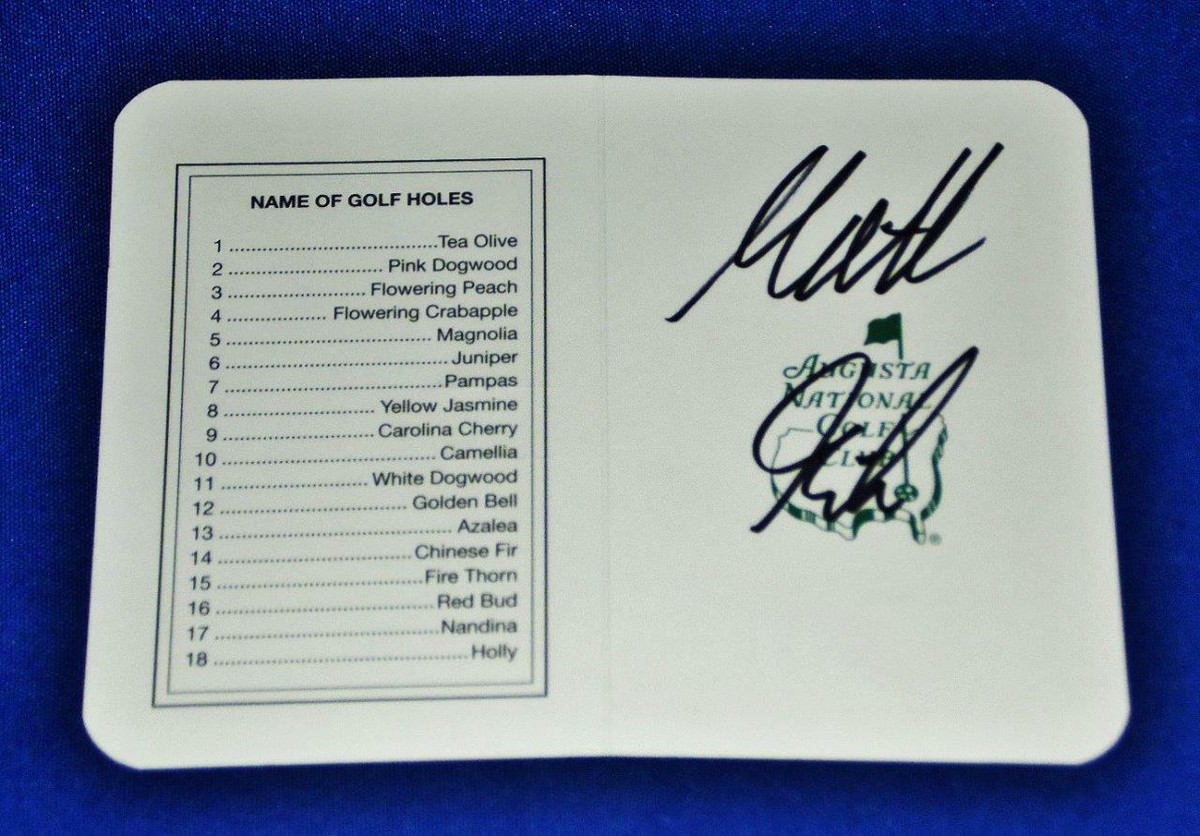 NAME OF GOLF HOLES
1 ........................................Tea Olive
2 .............................. Pink Dogwood
3 ........................... Flowering Peach
4 .................... Flowering Crabapple
5 ........................................ Magnolia
6 ...........................................Juniper
7 ..........................................Pampas
8 ............................ Yellow Jasmine
9 .............................Carolina Cherry
10 ......................................... Camellia
11 ............................ White Dogwood
12 .................................... Golden Bell
13 ............................................. Azalea
14 .....................................Chinese Fir
15 .......................................Fire Thorn
16 ..........................................Red Bud
17 ...........................................Nandina
18 .................................................Holly
Matt
AUGUSTA
NATIONAL
GOLF
CLUB
®